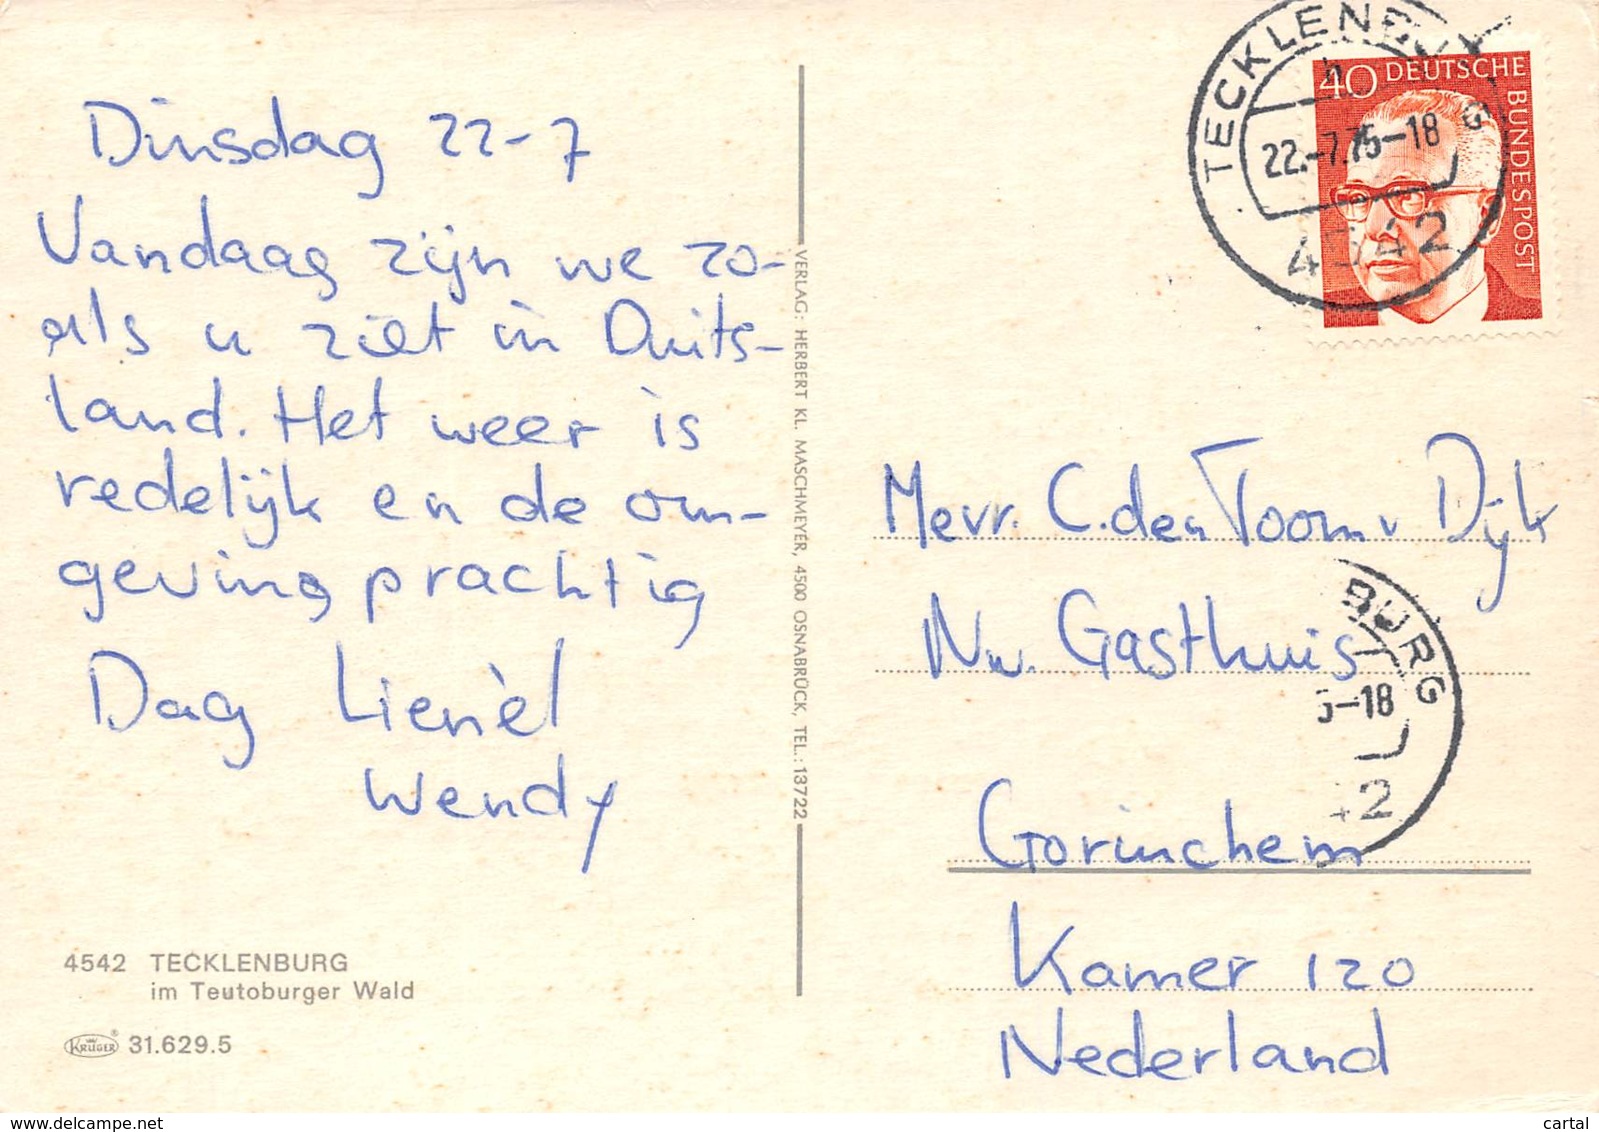 Dinsdag 22-7
Vandaag zijn we zo-
als u ziet in Duits-
land. Het weer is
redelijk en de om-
geving prachtig
Dag Lienèl
Wendy
4542 TECKLENBURG
im Teutoburger Wald
KRÜGER® 31.629.5
VERLAG: HERBERT KL. MASCHMEYER, 4500 OSNABRÜCK, TEL.: 13722
TECKLENBURG
h
22.-7.75-18
4542
40 DEUTSCHE
BUNDESPOST
Mevr. C. den Toom v Dijk
Nw. Gasthuis
BURG
5-18
42
Gorinchem
Kamer 120
Nederland
www.delcampe.net
cartal